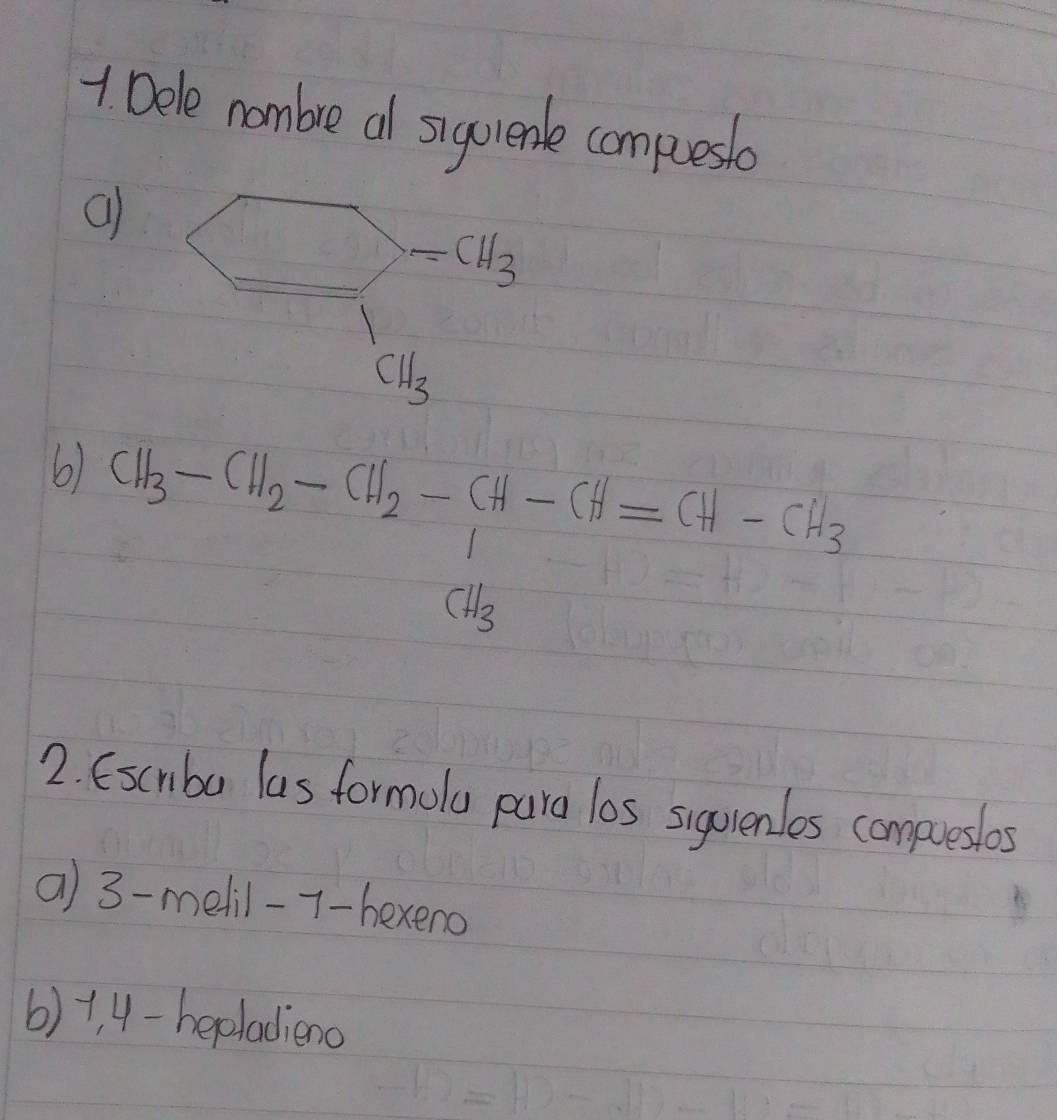 1. Dele nombre al siguiente compuesto
a)
-CH3
CH3
b) CH3 - CH2 - CH2 - CH - CH = CH - CH3
CH3
2. Escriba las formula para los siguientes compuestos
a) 3-metil-1-hexeno
b) 1,4-heptadieno